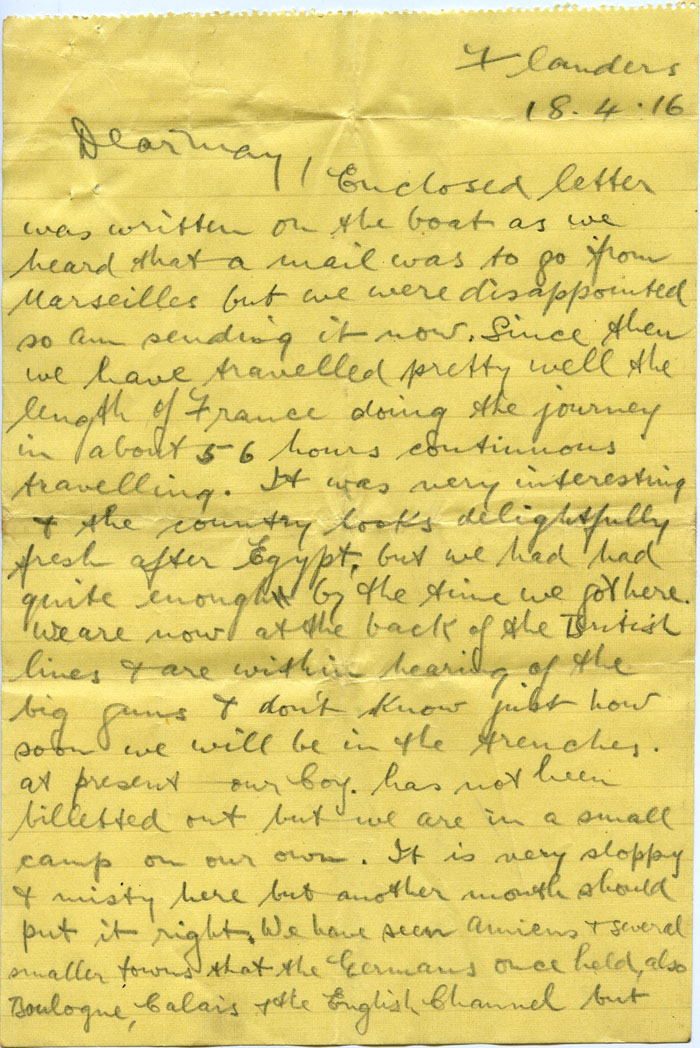 Flanders
18.4.16
Dear May,
Enclosed letter
was written on the boat as we
heard that a mail was to go from
Marseilles but we were disappointed
so am sending it now. Since then
we have travelled pretty well the
length of France doing the journey
in about 56 hours continuous
travelling. It was very interesting
& the country looks delightfully
fresh after Egypt, but we had had
quite enough by the time we got here.
We are now at the back of the British
lines & are within hearing of the
big guns & don't know just how
soon we will be in the trenches.
at present our Coy. has not been
billetted out but we are in a small
camp on our own. It is very sloppy
& misty here but another month should
put it right. We have seen Amiens & several
smaller towns that the Germans once held, also
Boulogne, Calais & the English Channel but